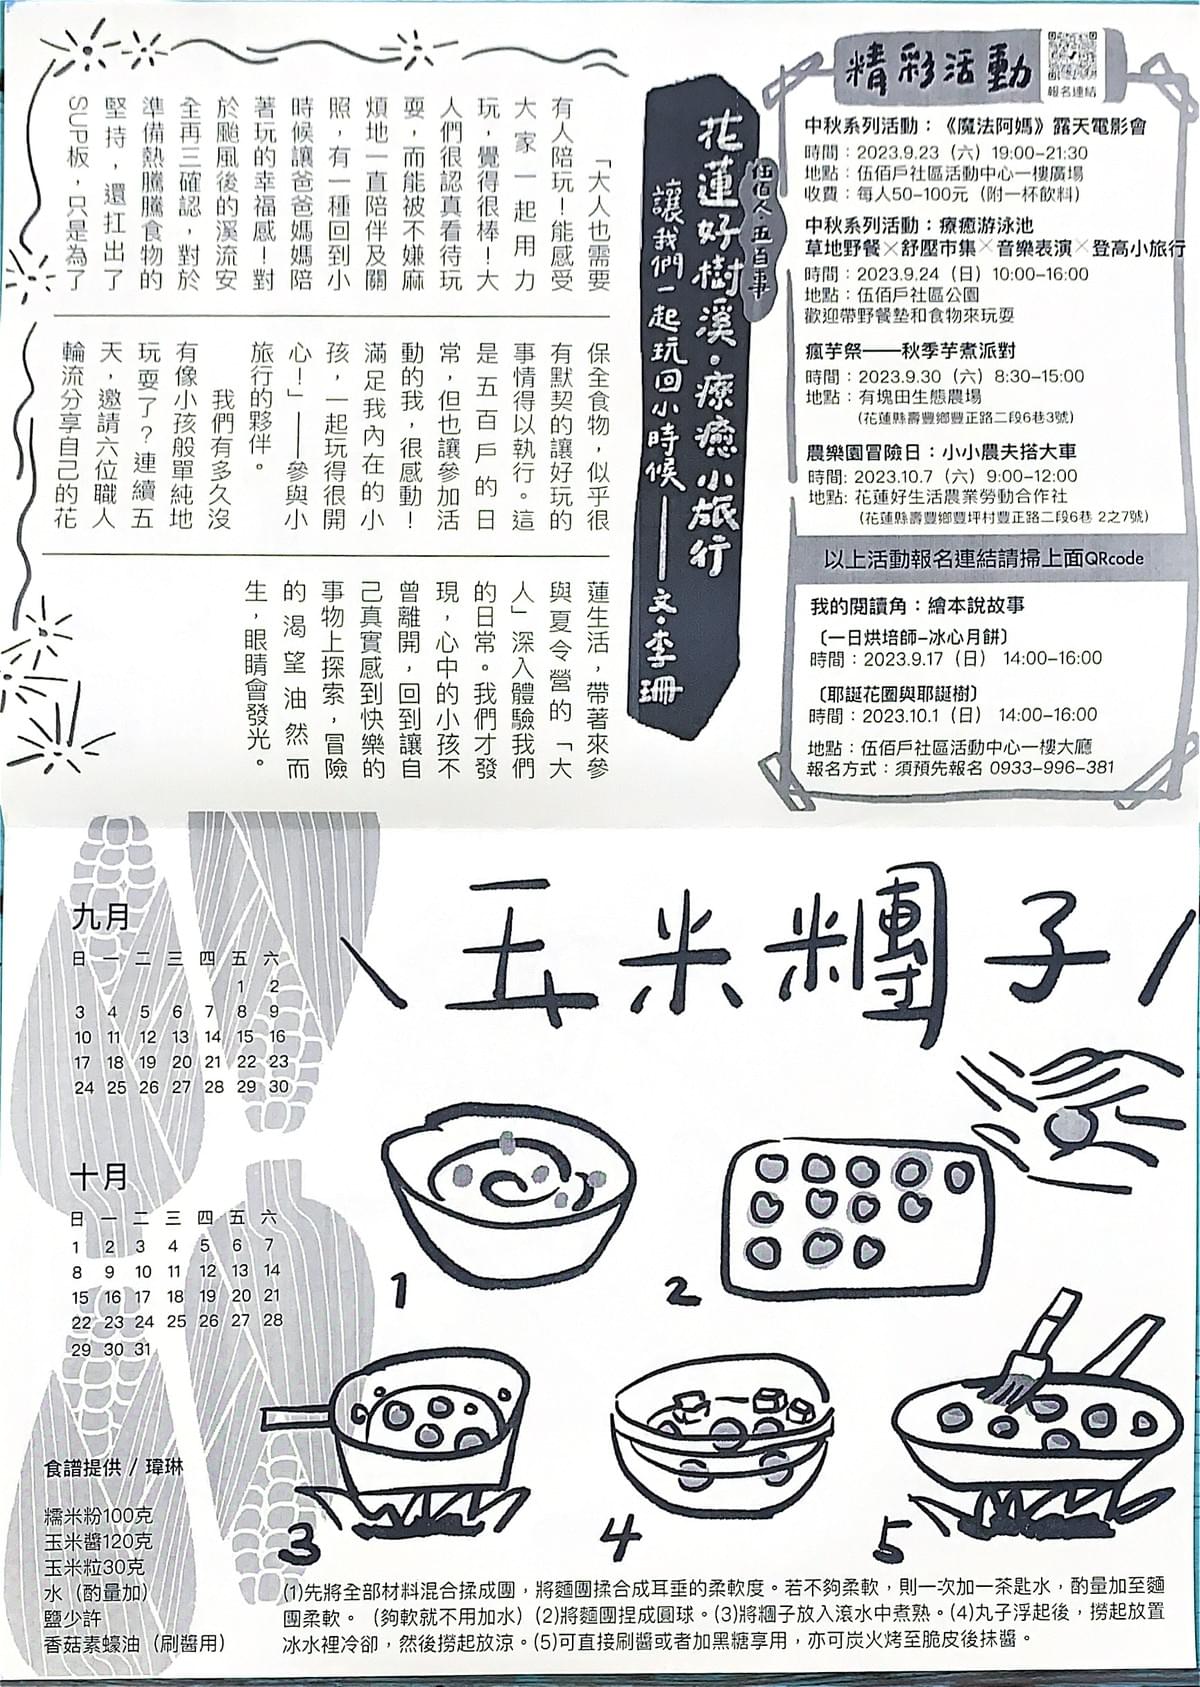 精彩活動
報名連結
中秋系列活動：《魔法阿媽》露天電影會
時間：2023.9.23（六）19:00-21:30
地點：伍佰戶社區活動中心一樓廣場
收費：每人50-100元（附一杯飲料）
中秋系列活動：療癒游泳池
草地野餐×舒壓市集×音樂表演×登高小旅行
時間：2023.9.24（日）10:00-16:00
地點：伍佰戶社區公園
歡迎帶野餐墊和食物來玩耍
瘋芋祭——秋季芋煮派對
時間：2023.9.30（六）8:30-15:00
地點：有塊田生態農場
（花蓮縣壽豐鄉豐正路二段6巷3號）
農樂園冒險日：小小農夫搭大車
時間: 2023.10.7（六）9:00-12:00
地點: 花蓮好生活農業勞動合作社
（花蓮縣壽豐鄉豐坪村豐正路二段6巷 2之7號）
以上活動報名連結請掃上面QRcode
我的閱讀角：繪本說故事
〔一日烘培師-冰心月餅〕
時間：2023.9.17（日） 14:00-16:00
〔耶誕花圈與耶誕樹〕
時間：2023.10.1（日） 14:00-16:00
地點：伍佰戶社區活動中心一樓大廳
報名方式：須預先報名 0933-996-381
伍佰人五百事
花蓮好樹溪·療癒小旅行
讓我們一起玩回小時候——文·李珊
「大人也需要
有人陪玩！能感受
大家一起用力
玩，覺得很棒！大
人們很認真看待玩
耍，而能被不嫌麻
煩地一直陪伴及關
照，有一種回到小
時候讓爸爸媽媽陪
著玩的幸福感！對
於颱風後的溪流安
全再三確認，對於
準備熱騰騰食物的
堅持，還扛出了
SUP板，只是為了
保全食物，似乎很
有默契的讓好玩的
事情得以執行。這
是五百戶的日
常，但也讓參加活
動的我，很感動！
滿足我內在的小
孩，一起玩得很開
心！」——參與小
旅行的夥伴。
我們有多久沒
有像小孩般單純地
玩耍了？連續五
天，邀請六位職人
輪流分享自己的花
蓮生活，帶著來參
與夏令營的「大
人」深入體驗我們
的日常。我們才發
現，心中的小孩不
曾離開，回到讓自
己真實感到快樂的
事物上探索，冒險
的渴望油然而
生，眼睛會發光。
玉米糰子
九月
日 一 二 三 四 五 六
1 2
3 4 5 6 7 8 9
10 11 12 13 14 15 16
17 18 19 20 21 22 23
24 25 26 27 28 29 30
十月
日 一 二 三 四 五 六
1 2 3 4 5 6 7
8 9 10 11 12 13 14
15 16 17 18 19 20 21
22 23 24 25 26 27 28
29 30 31
食譜提供 / 瑋琳
糯米粉100克
玉米醬120克
玉米粒30克
水（酌量加）
鹽少許
香菇素蠔油（刷醬用）
1
2
3
4
5
(1)先將全部材料混合揉成團，將麵團揉合成耳垂的柔軟度。若不夠柔軟，則一次加一茶匙水，酌量加至麵
團柔軟。（夠軟就不用加水）(2)將麵團捏成圓球。(3)將糰子放入滾水中煮熟。(4)丸子浮起後，撈起放置
冰水裡冷卻，然後撈起放涼。(5)可直接刷醬或者加黑糖享用，亦可炭火烤至脆皮後抹醬。